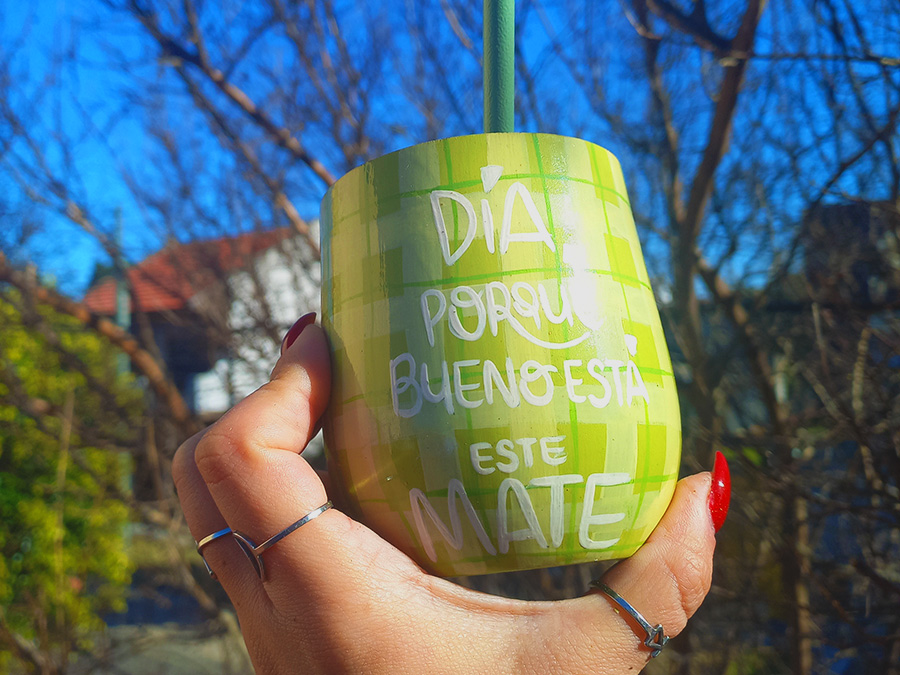 DÍA
PORQUE
BUENO ESTÁ
ESTE
MATE